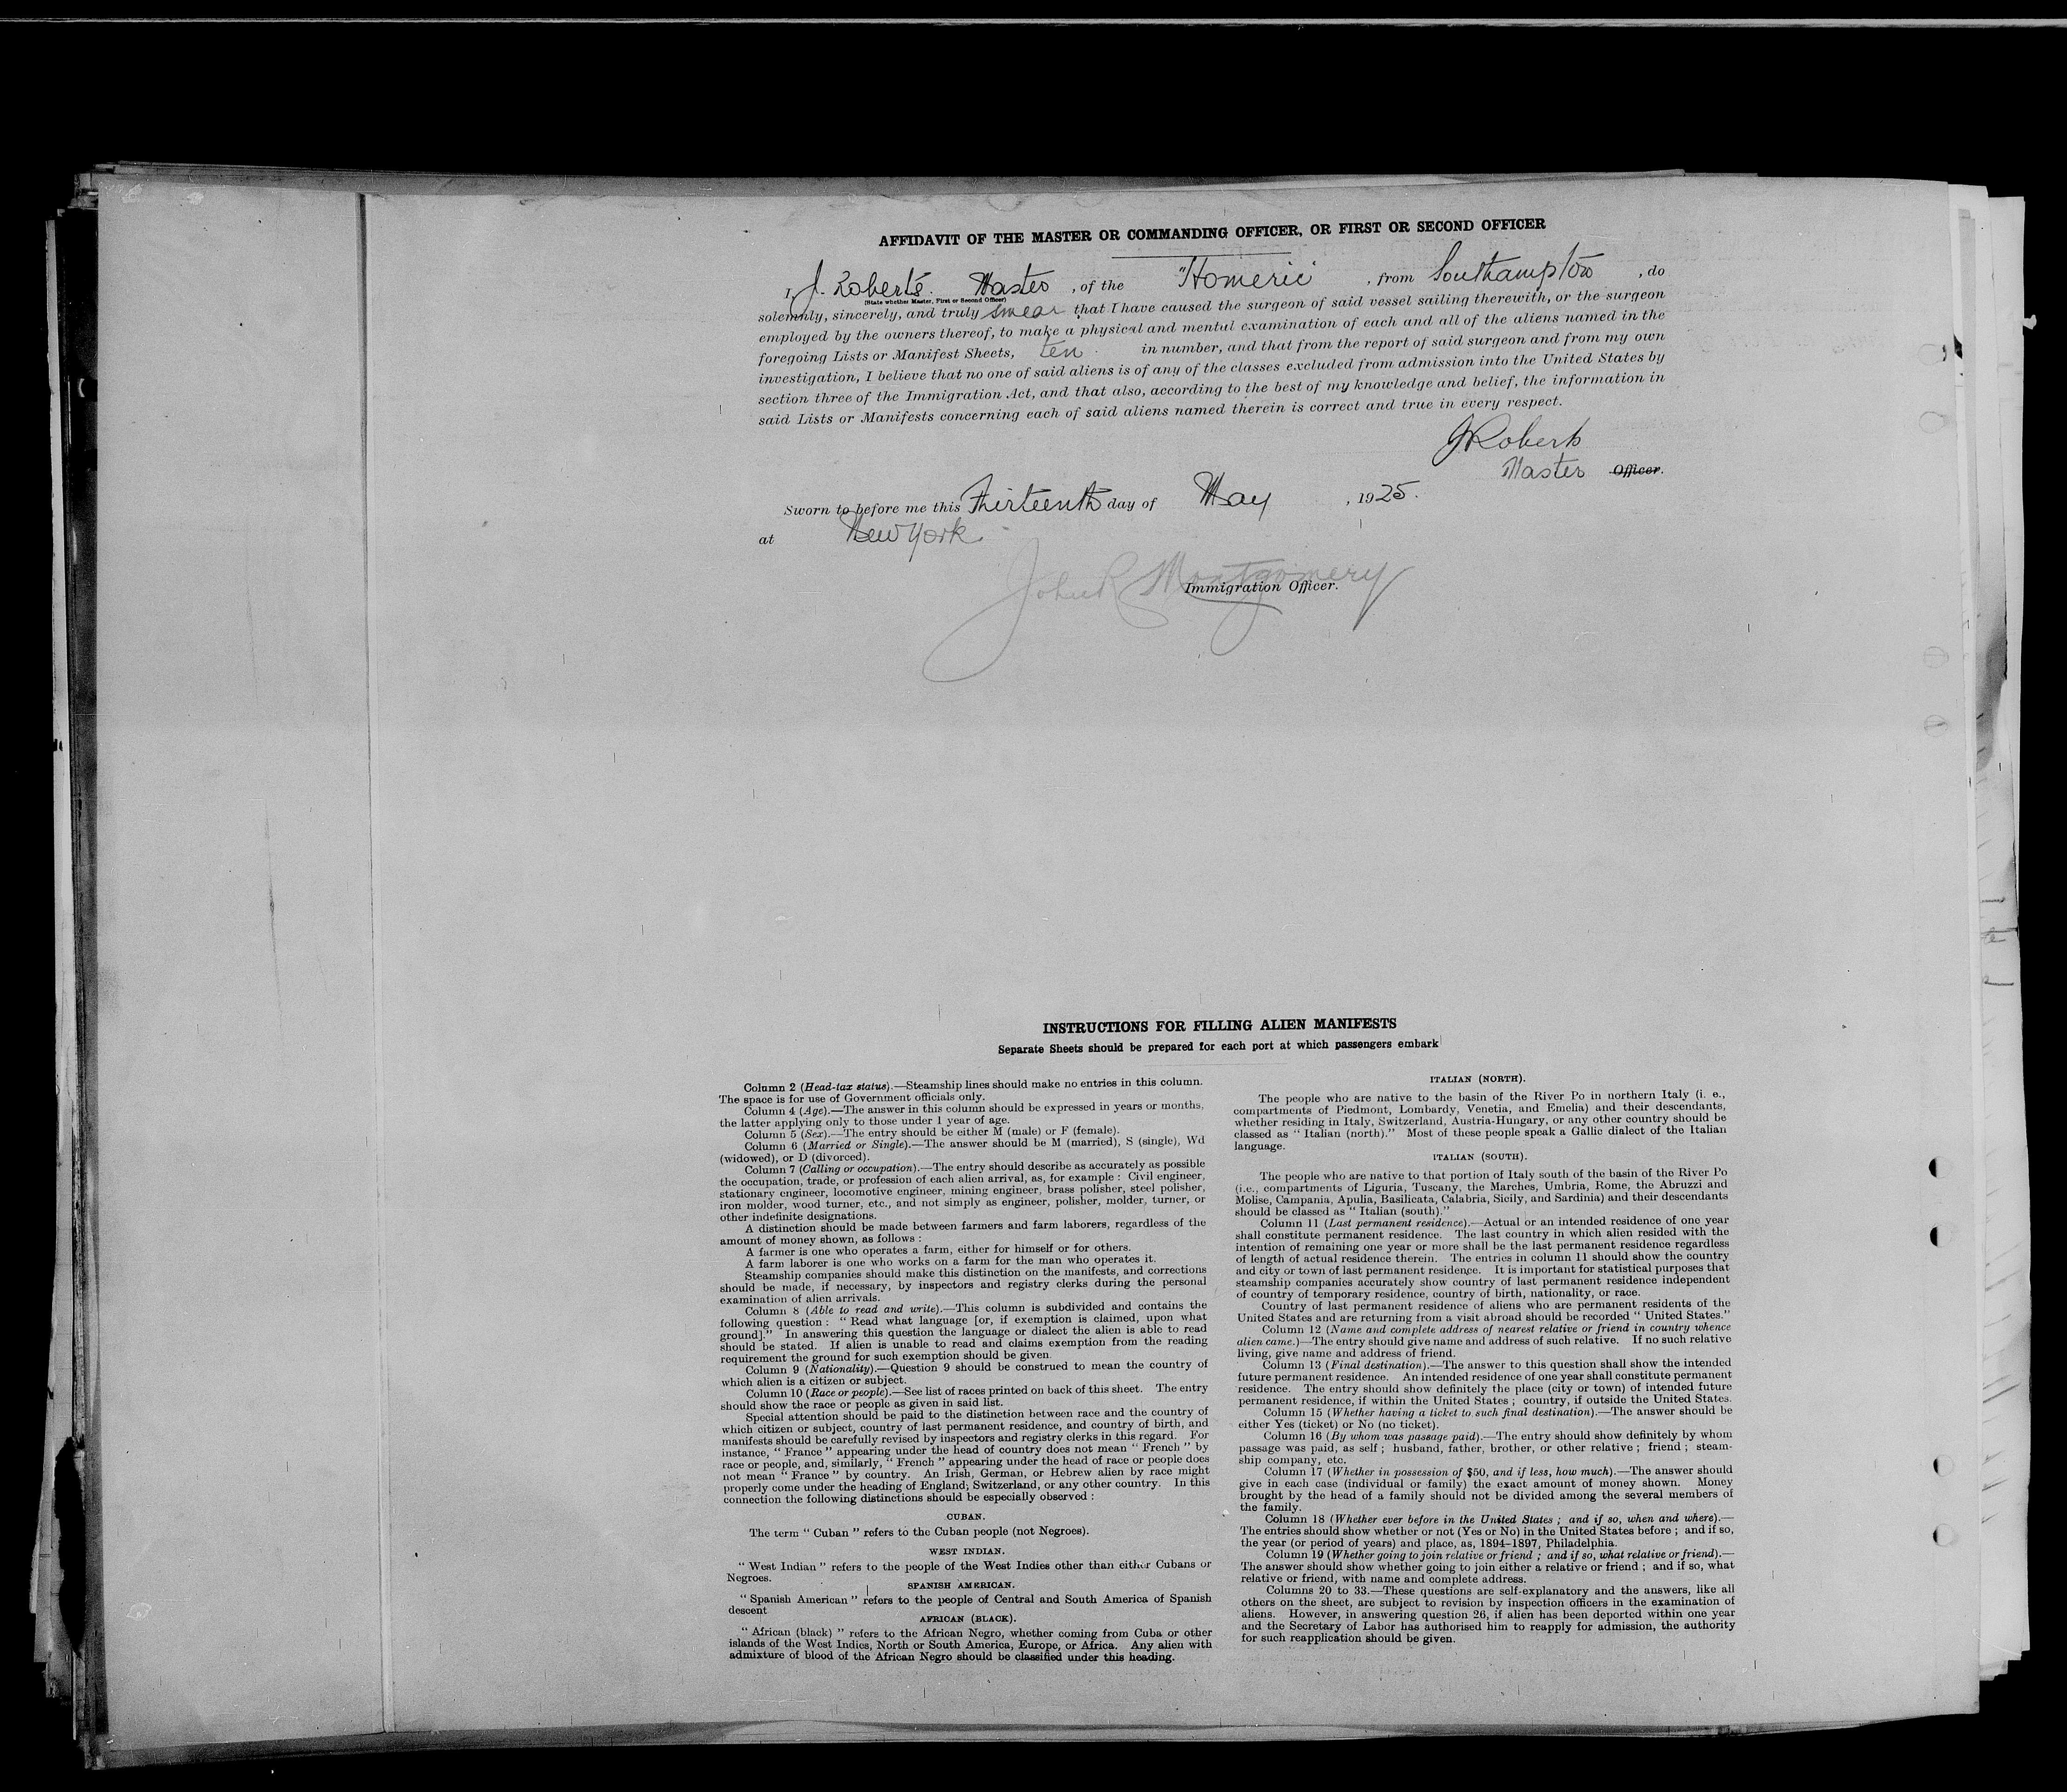 AFFIDAVIT OF THE MASTER OR COMMANDING OFFICER, OR FIRST OR SECOND OFFICER
I, J. Roberts. Master, of the "Homeric", from Southampton, do
(State whether Master, First or Second Officer)
solemnly, sincerely, and truly swear that I have caused the surgeon of said vessel sailing therewith, or the surgeon
employed by the owners thereof, to make a physical and mental examination of each and all of the aliens named in the
foregoing Lists or Manifest Sheets, ten in number, and that from the report of said surgeon and from my own
investigation, I believe that no one of said aliens is of any of the classes excluded from admission into the United States by
section three of the Immigration Act, and that also, according to the best of my knowledge and belief, the information in
said Lists or Manifests concerning each of said aliens named therein is correct and true in every respect.
J Roberts
Master Officer.
Sworn to before me this Thirteenth day of May, 1925.
at New York.
John R Montgomery
Immigration Officer.
INSTRUCTIONS FOR FILLING ALIEN MANIFESTS
Separate Sheets should be prepared for each port at which passengers embark
Column 2 (Head-tax status).—Steamship lines should make no entries in this column.
The space is for use of Government officials only.
Column 4 (Age).—The answer in this column should be expressed in years or months,
the latter applying only to those under 1 year of age.
Column 5 (Sex).—The entry should be either M (male) or F (female).
Column 6 (Married or Single).—The answer should be M (married), S (single), Wd
(widowed), or D (divorced).
Column 7 (Calling or occupation).—The entry should describe as accurately as possible
the occupation, trade, or profession of each alien arrival, as, for example : Civil engineer,
stationary engineer, locomotive engineer, mining engineer, brass polisher, steel polisher,
iron molder, wood turner, etc., and not simply as engineer, polisher, molder, turner, or
other indefinite designations.
A distinction should be made between farmers and farm laborers, regardless of the
amount of money shown, as follows :
A farmer is one who operates a farm, either for himself or for others.
A farm laborer is one who works on a farm for the man who operates it.
Steamship companies should make this distinction on the manifests, and corrections
should be made, if necessary, by inspectors and registry clerks during the personal
examination of alien arrivals.
Column 8 (Able to read and write).—This column is subdivided and contains the
following question : " Read what language [or, if exemption is claimed, upon what
ground]." In answering this question the language or dialect the alien is able to read
should be stated. If alien is unable to read and claims exemption from the reading
requirement the ground for such exemption should be given.
Column 9 (Nationality).—Question 9 should be construed to mean the country of
which alien is a citizen or subject.
Column 10 (Race or people).—See list of races printed on back of this sheet. The entry
should show the race or people as given in said list.
Special attention should be paid to the distinction between race and the country of
which citizen or subject, country of last permanent residence, and country of birth, and
manifests should be carefully revised by inspectors and registry clerks in this regard. For
instance, " France " appearing under the head of country does not mean " French " by
race or people, and, similarly, " French " appearing under the head of race or people does
not mean " France " by country. An Irish, German, or Hebrew alien by race might
properly come under the heading of England; Switzerland, or any other country. In this
connection the following distinctions should be especially observed :
CUBAN.
The term " Cuban " refers to the Cuban people (not Negroes).
WEST INDIAN.
" West Indian " refers to the people of the West Indies other than either Cubans or
Negroes.
SPANISH AMERICAN.
" Spanish American " refers to the people of Central and South America of Spanish
descent
AFRICAN (BLACK).
" African (black) " refers to the African Negro, whether coming from Cuba or other
islands of the West Indies, North or South America, Europe, or Africa. Any alien with
admixture of blood of the African Negro should be classified under this heading.
ITALIAN (NORTH).
The people who are native to the basin of the River Po in northern Italy (i. e.,
compartments of Piedmont, Lombardy, Venetia, and Emelia) and their descendants,
whether residing in Italy, Switzerland, Austria-Hungary, or any other country should be
classed as " Italian (north)." Most of these people speak a Gallic dialect of the Italian
language.
ITALIAN (SOUTH).
The people who are native to that portion of Italy south of the basin of the River Po
(i.e., compartments of Liguria, Tuscany, the Marches, Umbria, Rome, the Abruzzi and
Molise, Campania, Apulia, Basilicata, Calabria, Sicily, and Sardinia) and their descendants
should be classed as " Italian (south)."
Column 11 (Last permanent residence).—Actual or an intended residence of one year
shall constitute permanent residence. The last country in which alien resided with the
intention of remaining one year or more shall be the last permanent residence regardless
of length of actual residence therein. The entries in column 11 should show the country
and city or town of last permanent residence. It is important for statistical purposes that
steamship companies accurately show country of last permanent residence independent
of country of temporary residence, country of birth, nationality, or race.
Country of last permanent residence of aliens who are permanent residents of the
United States and are returning from a visit abroad should be recorded " United States."
Column 12 (Name and complete address of nearest relative or friend in country whence
alien came.)—The entry should give name and address of such relative. If no such relative
living, give name and address of friend.
Column 13 (Final destination).—The answer to this question shall show the intended
future permanent residence. An intended residence of one year shall constitute permanent
residence. The entry should show definitely the place (city or town) of intended future
permanent residence, if within the United States ; country, if outside the United States.
Column 15 (Whether having a ticket to such final destination).—The answer should be
either Yes (ticket) or No (no ticket).
Column 16 (By whom was passage paid).—The entry should show definitely by whom
passage was paid, as self ; husband, father, brother, or other relative ; friend ; steam-
ship company, etc.
Column 17 (Whether in possession of $50, and if less, how much).—The answer should
give in each case (individual or family) the exact amount of money shown. Money
brought by the head of a family should not be divided among the several members of
the family.
Column 18 (Whether ever before in the United States ; and if so, when and where).—
The entries should show whether or not (Yes or No) in the United States before ; and if so,
the year (or period of years) and place, as, 1894-1897, Philadelphia.
Column 19 (Whether going to join relative or friend ; and if so, what relative or friend).—
The answer should show whether going to join either a relative or friend ; and if so, what
relative or friend, with name and complete address.
Columns 20 to 33.—These questions are self-explanatory and the answers, like all
others on the sheet, are subject to revision by inspection officers in the examination of
aliens. However, in answering question 26, if alien has been deported within one year
and the Secretary of Labor has authorised him to reapply for admission, the authority
for such reapplication should be given.